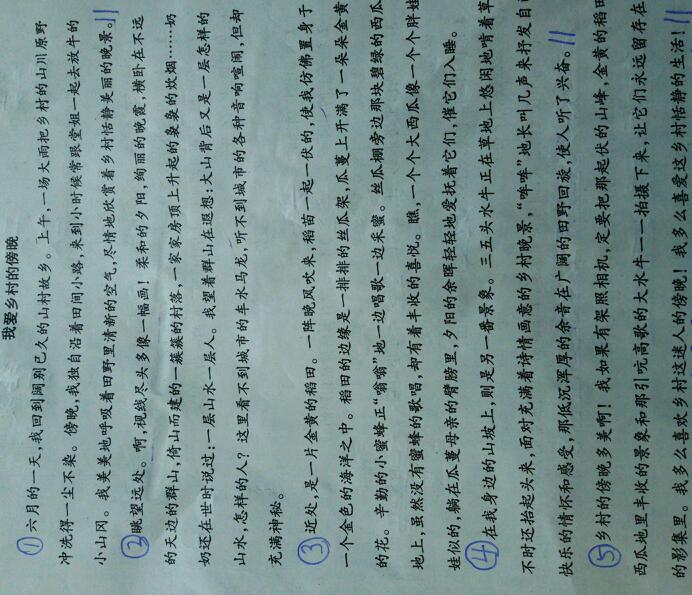 我爱乡村的傍晚
①六月的一天,我回到阔别已久的山村故乡。上午,一场大雨把乡村的山川原野
冲洗得一尘不染。傍晚,我独自沿着田间小路,来到小时候常跟堂姐一起去放牛的
小山冈。我美美地呼吸着田野里清新的空气,尽情地欣赏着乡村恬静美丽的晚景。
②眺望远处。啊,视线尽头多像一幅画!柔和的夕阳,绚丽的晚霞,横卧在不远
的天边的群山,倚山而建的一簇簇的村落,一家家房顶上升起的袅袅的炊烟……奶
奶还在世时说过:一层山水一层人。我望着群山在遐想:大山背后又是一层怎样的
山水,怎样的人?这里看不到城市的车水马龙,听不到城市的各种音响喧闹,但却
充满神秘。
③近处,是一片金黄的稻田。一阵晚风吹来,稻苗一起一伏的,使我仿佛置身于
一个金色的海洋之中。稻田的边缘是一排排的丝瓜架,瓜蔓上开满了一朵朵金黄
的花。辛勤的小蜜蜂正“嗡嗡”地一边唱歌一边采蜜。丝瓜棚旁边那块碧绿的西瓜
地上,虽然没有蜜蜂的歌唱,却有着丰收的喜悦。瞧,一个个大西瓜像一个个胖娃
娃似的,躺在瓜蔓母亲的臂膀里,夕阳的余晖轻轻地爱抚着它们,催它们入睡。
④在我身边的山坡上,则是另一番景象。三五头水牛正在草地上悠闲地啃着草
不时还抬起头来,面对充满着诗情画意的乡村晚景,“哞哞”地长叫几声来抒发自
快乐的情怀和感受,那低沉浑厚的余音在广阔的田野回旋,使人听了兴奋。
⑤乡村的傍晚多美啊!我如果有架照相机,定要把那起伏的山峰,金黄的稻田
西瓜地里丰收的景象和那引吭高歌的大水牛一一拍摄下来,让它们永远留存在
的影集里。我多么喜欢乡村这迷人的傍晚!我多么喜爱这乡村恬静的生活!